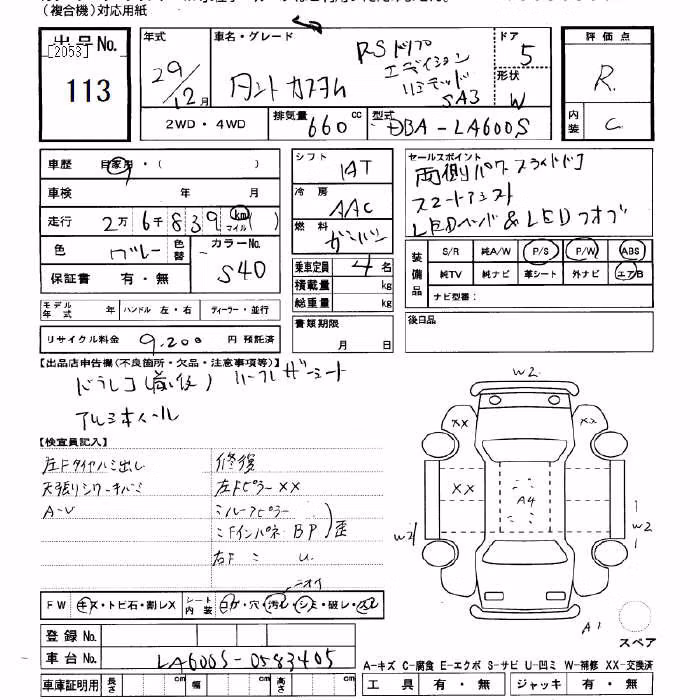 (複合機)対応用紙
出品No.
[2053]
113
年式
29/12月
車名・グレード
タントカスタム
RSトップ
エディション
リミテッド
SA3
ドア
5
形状
W
2WD・4WD
排気量 660 cc
型式 DBA-LA600S
評価点
R
内装
C
車歴 自家用・( )
車検 年 月
走行 2万6千839 km マイル( )
色 グレー 色替
カラーNo.
S40
保証書 有・無
モデル年式 年 ハンドル 左・右 ディーラー・並行
リサイクル料金 9,200 円 預託済
シフト
IAT
冷房
AAC
燃料
ガソリン
乗車定員 4 名
積載量 kg
総重量 kg
書類期限
月 日
セールスポイント
両側パワースライドドア
スマートアシスト
LEDヘッド&LEDフォグ
装備品
S/R 純A/W P/S P/W ABS
純TV 純ナビ 革シート 外ナビ エアB
ナビ型番:
後日品
【出品店申告欄(不良箇所・欠品・注意事項等)】
ドラレコ(前後) ハーフレザーシート
アルミホイール
【検査員記入】
左Fタイヤハミ出し
天張りシワ・キバミ
A-V
修復
左Fピラー XX
ミルーフピラー
ミFインパネ BP 歪
右F ミ U
ニオイ
FW キズ・トビ石・割レX
シート内装 コゲ・穴・汚レ・シミ・破レ・スレ
登録No.
車台No. LA600S-0583405
車庫証明用 長さ cm 幅 cm 高さ cm
W2
XX
XX
XX
A4
W2
W2
A1
スペア
A-キズ C-腐食 E-エクボ S-サビ U-凹ミ W-補修 XX-交換済
工具 有・無 ジャッキ 有・無